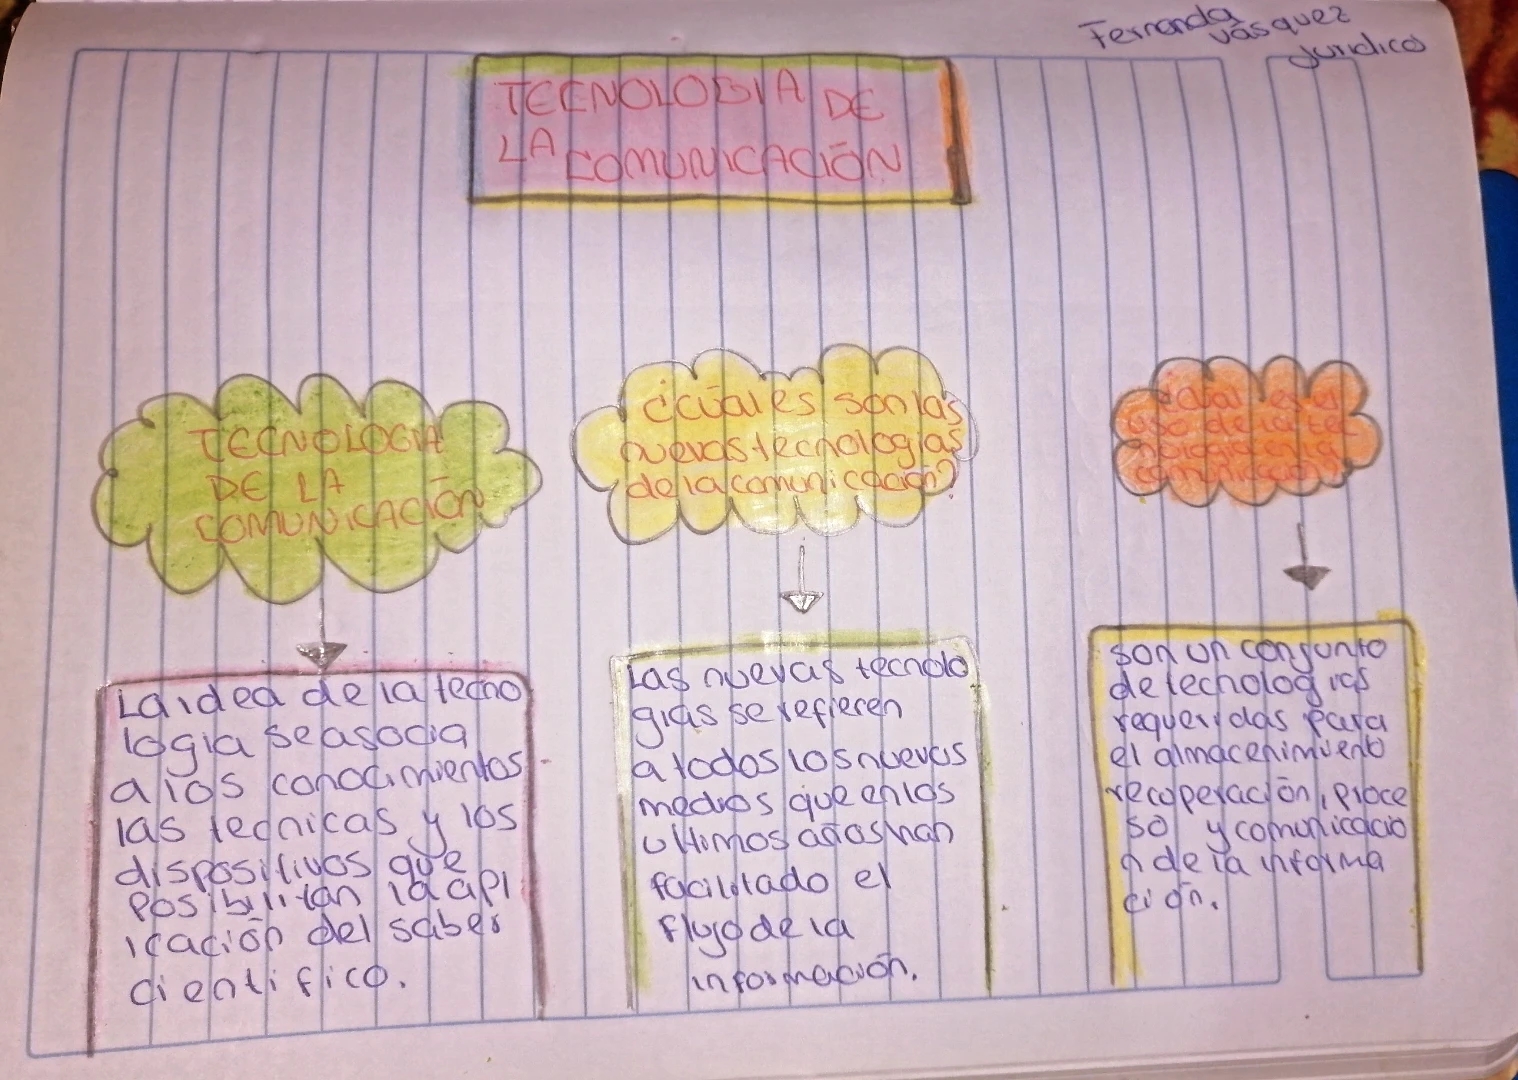 Fernanda
Vásquez
Juridico
TECNOLOGIA DE
LA COMUNICACIÓN
TECNOLOGIA
DE LA
COMUNICACIÓN
¿cuales son las
nuevas tecnologias
de la comunicación?
¿cual es el
uso de la tec
nologia en la
comunicación?
La idea de la tecno
logia se asocia
a los conocimientos
las tecnicas y los
dispositivos que
posibilitan la apl
icación del saber
cientifico.
Las nuevas tecnolo
gias se refieren
a todos los nuevos
medios que en los
ultimos años han
facilitado el
flujo de la
información.
son un conjunto
de tecnologias
requeridas para
el almacenimiento
recoperación, proce
so y comunicacio
n de la informa
ción.